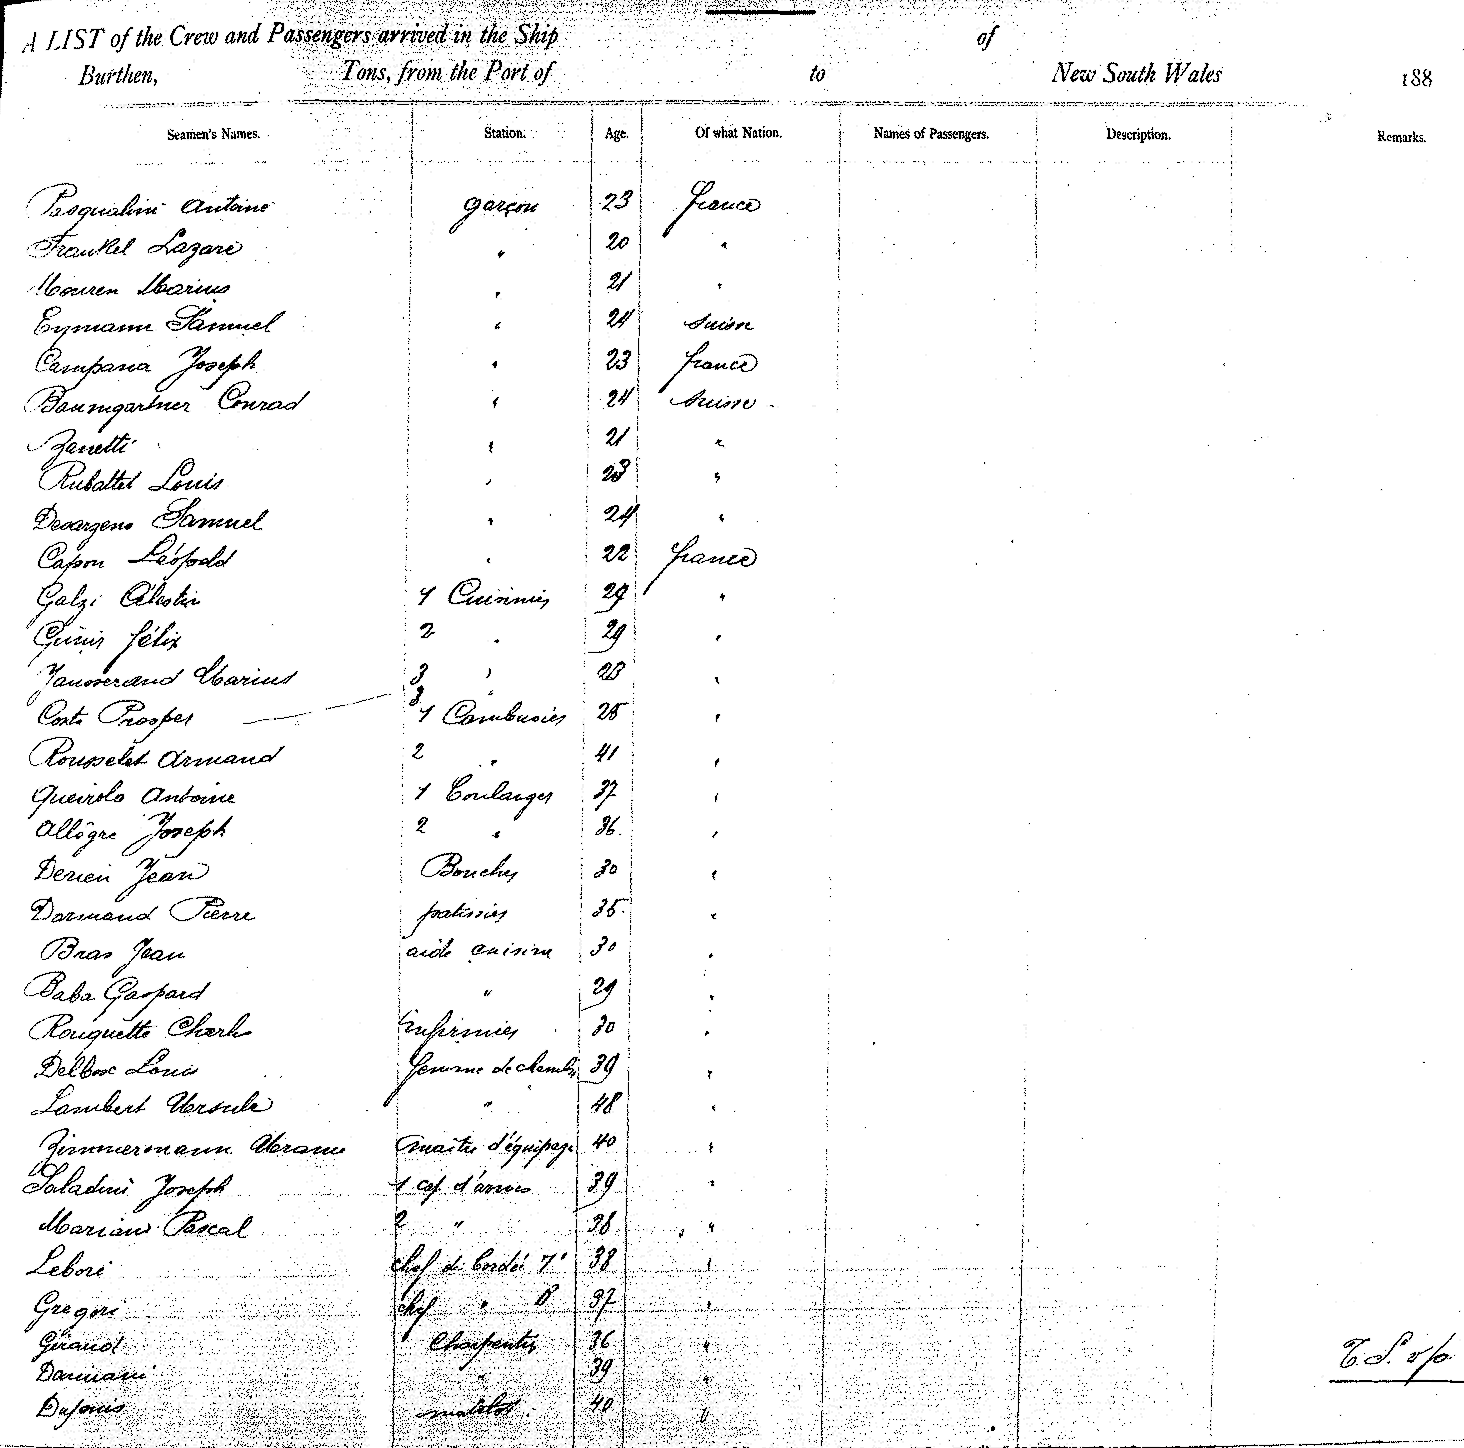 A LIST of the Crew and Passengers arrived in the Ship of
Burthen, Tons, from the Port of to New South Wales 188
Seamen's Names. Station. Age. Of what Nation. Names of Passengers. Description. Remarks.
Pasqualini Antoine garçon 23 france
Frankel Lazare " 20 "
Mouren Marius " 21 "
Eymann Samuel " 24 Suisse
Campana Joseph " 23 france
Baumgartner Conrad " 24 Suisse
Zanetti " 21 "
Rubattel Louis " 23 "
Desargens Samuel " 24 "
Capon Léopold " 22 france
Galzi Célestin 1 Cuisinier 29 "
félix 2 " 29 "
Jausserand Marius 3 " 23 "
Coste Prosper 1 Cambusier 25 "
Rousselet Armand 2 " 41 "
Queirolo Antoine 1 Boulanger 37 "
Allègre Joseph 2 " 36 "
Derien Jean Boucher 30 "
Dormand Pierre patissier 35 "
Bras Jean aide cuisine 30 "
Baba Gaspard " 29 "
Rouquette Charles infirmier 30 "
Delbosc Louis femme de chambre 39 "
Lambert Ursule " 48 "
Zimmermann Abram maître d'équipage 40 "
Saladini Joseph 1 cap d'armes 39 "
Mariani Pascal 2 " "
Lebori chef de bordée T 38 "
Gregori chef " B 37 "
Giraud Charpentier 36 "
Damiani " 39 "
matelot 40 "
T. S. v/p